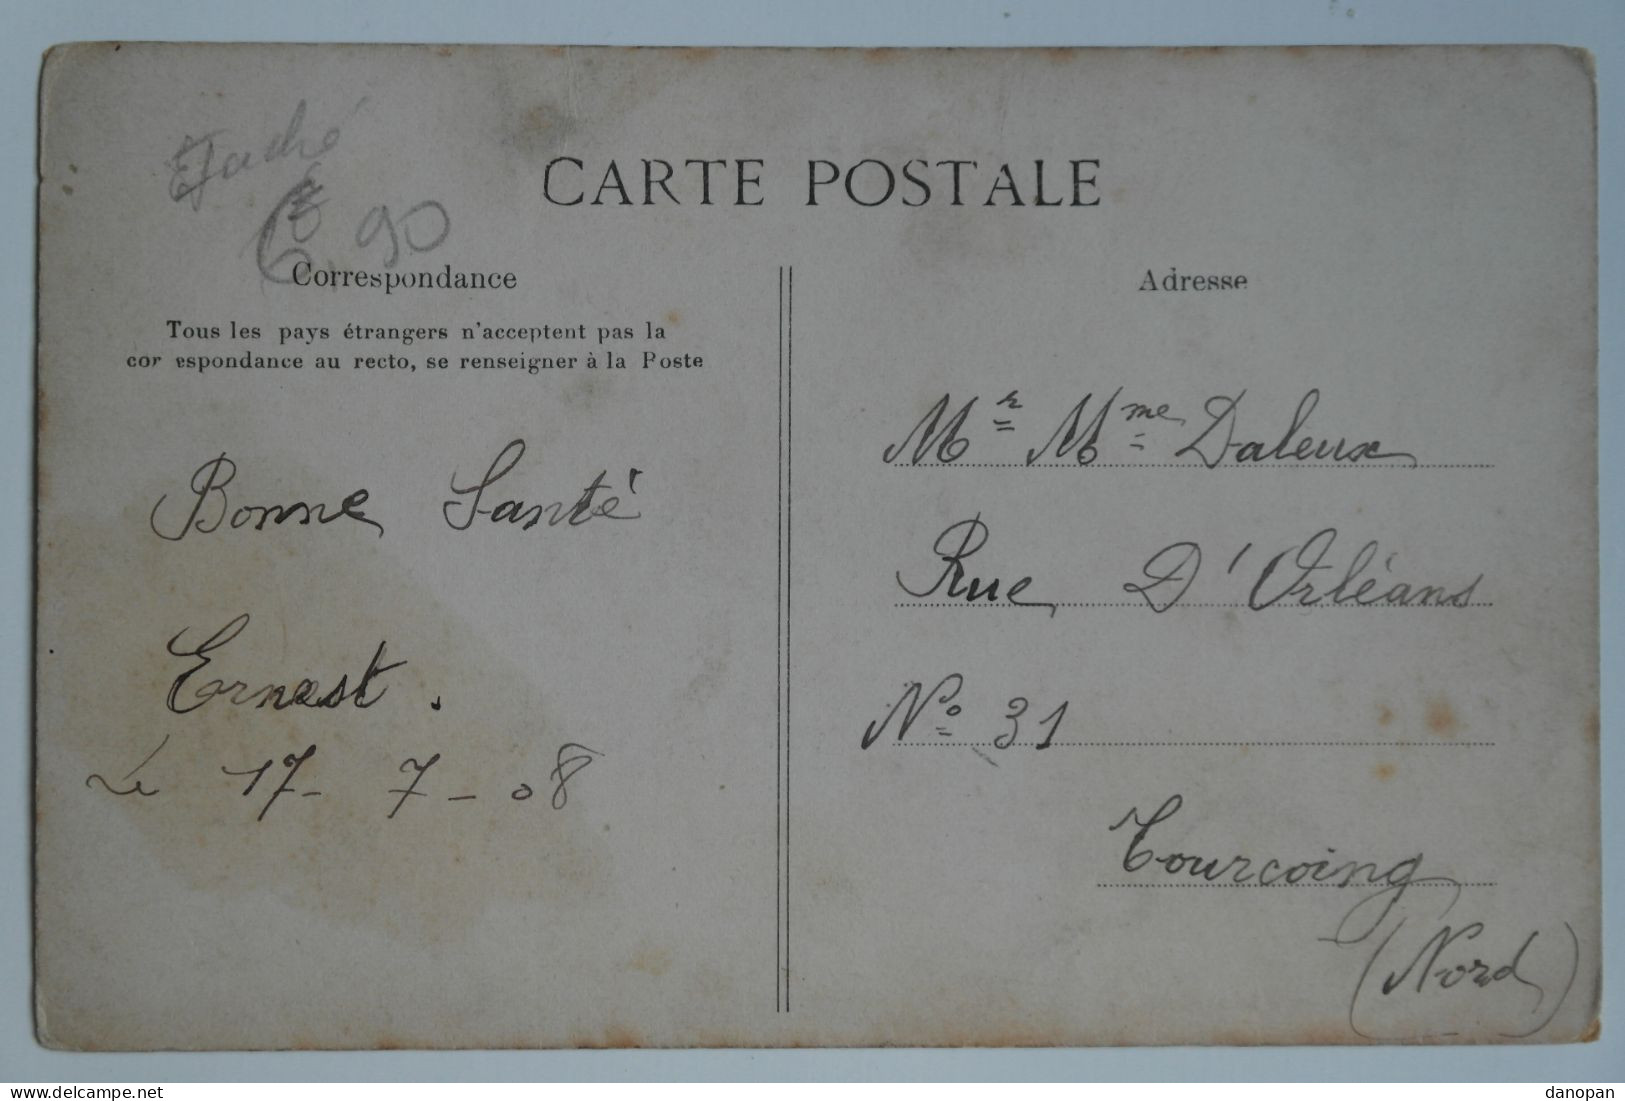 CARTE POSTALE
90
Correspondance
Tous les pays étrangers n'acceptent pas la
cor espondance au recto, se renseigner à la Poste
Bonne Santé
Ernest.
Le 17 - 7 - 08
Adresse
Mr Mme Daleux
Rue D'Orléans
No 31
Tourcoing
(Nord)
delcampe.net
danopan